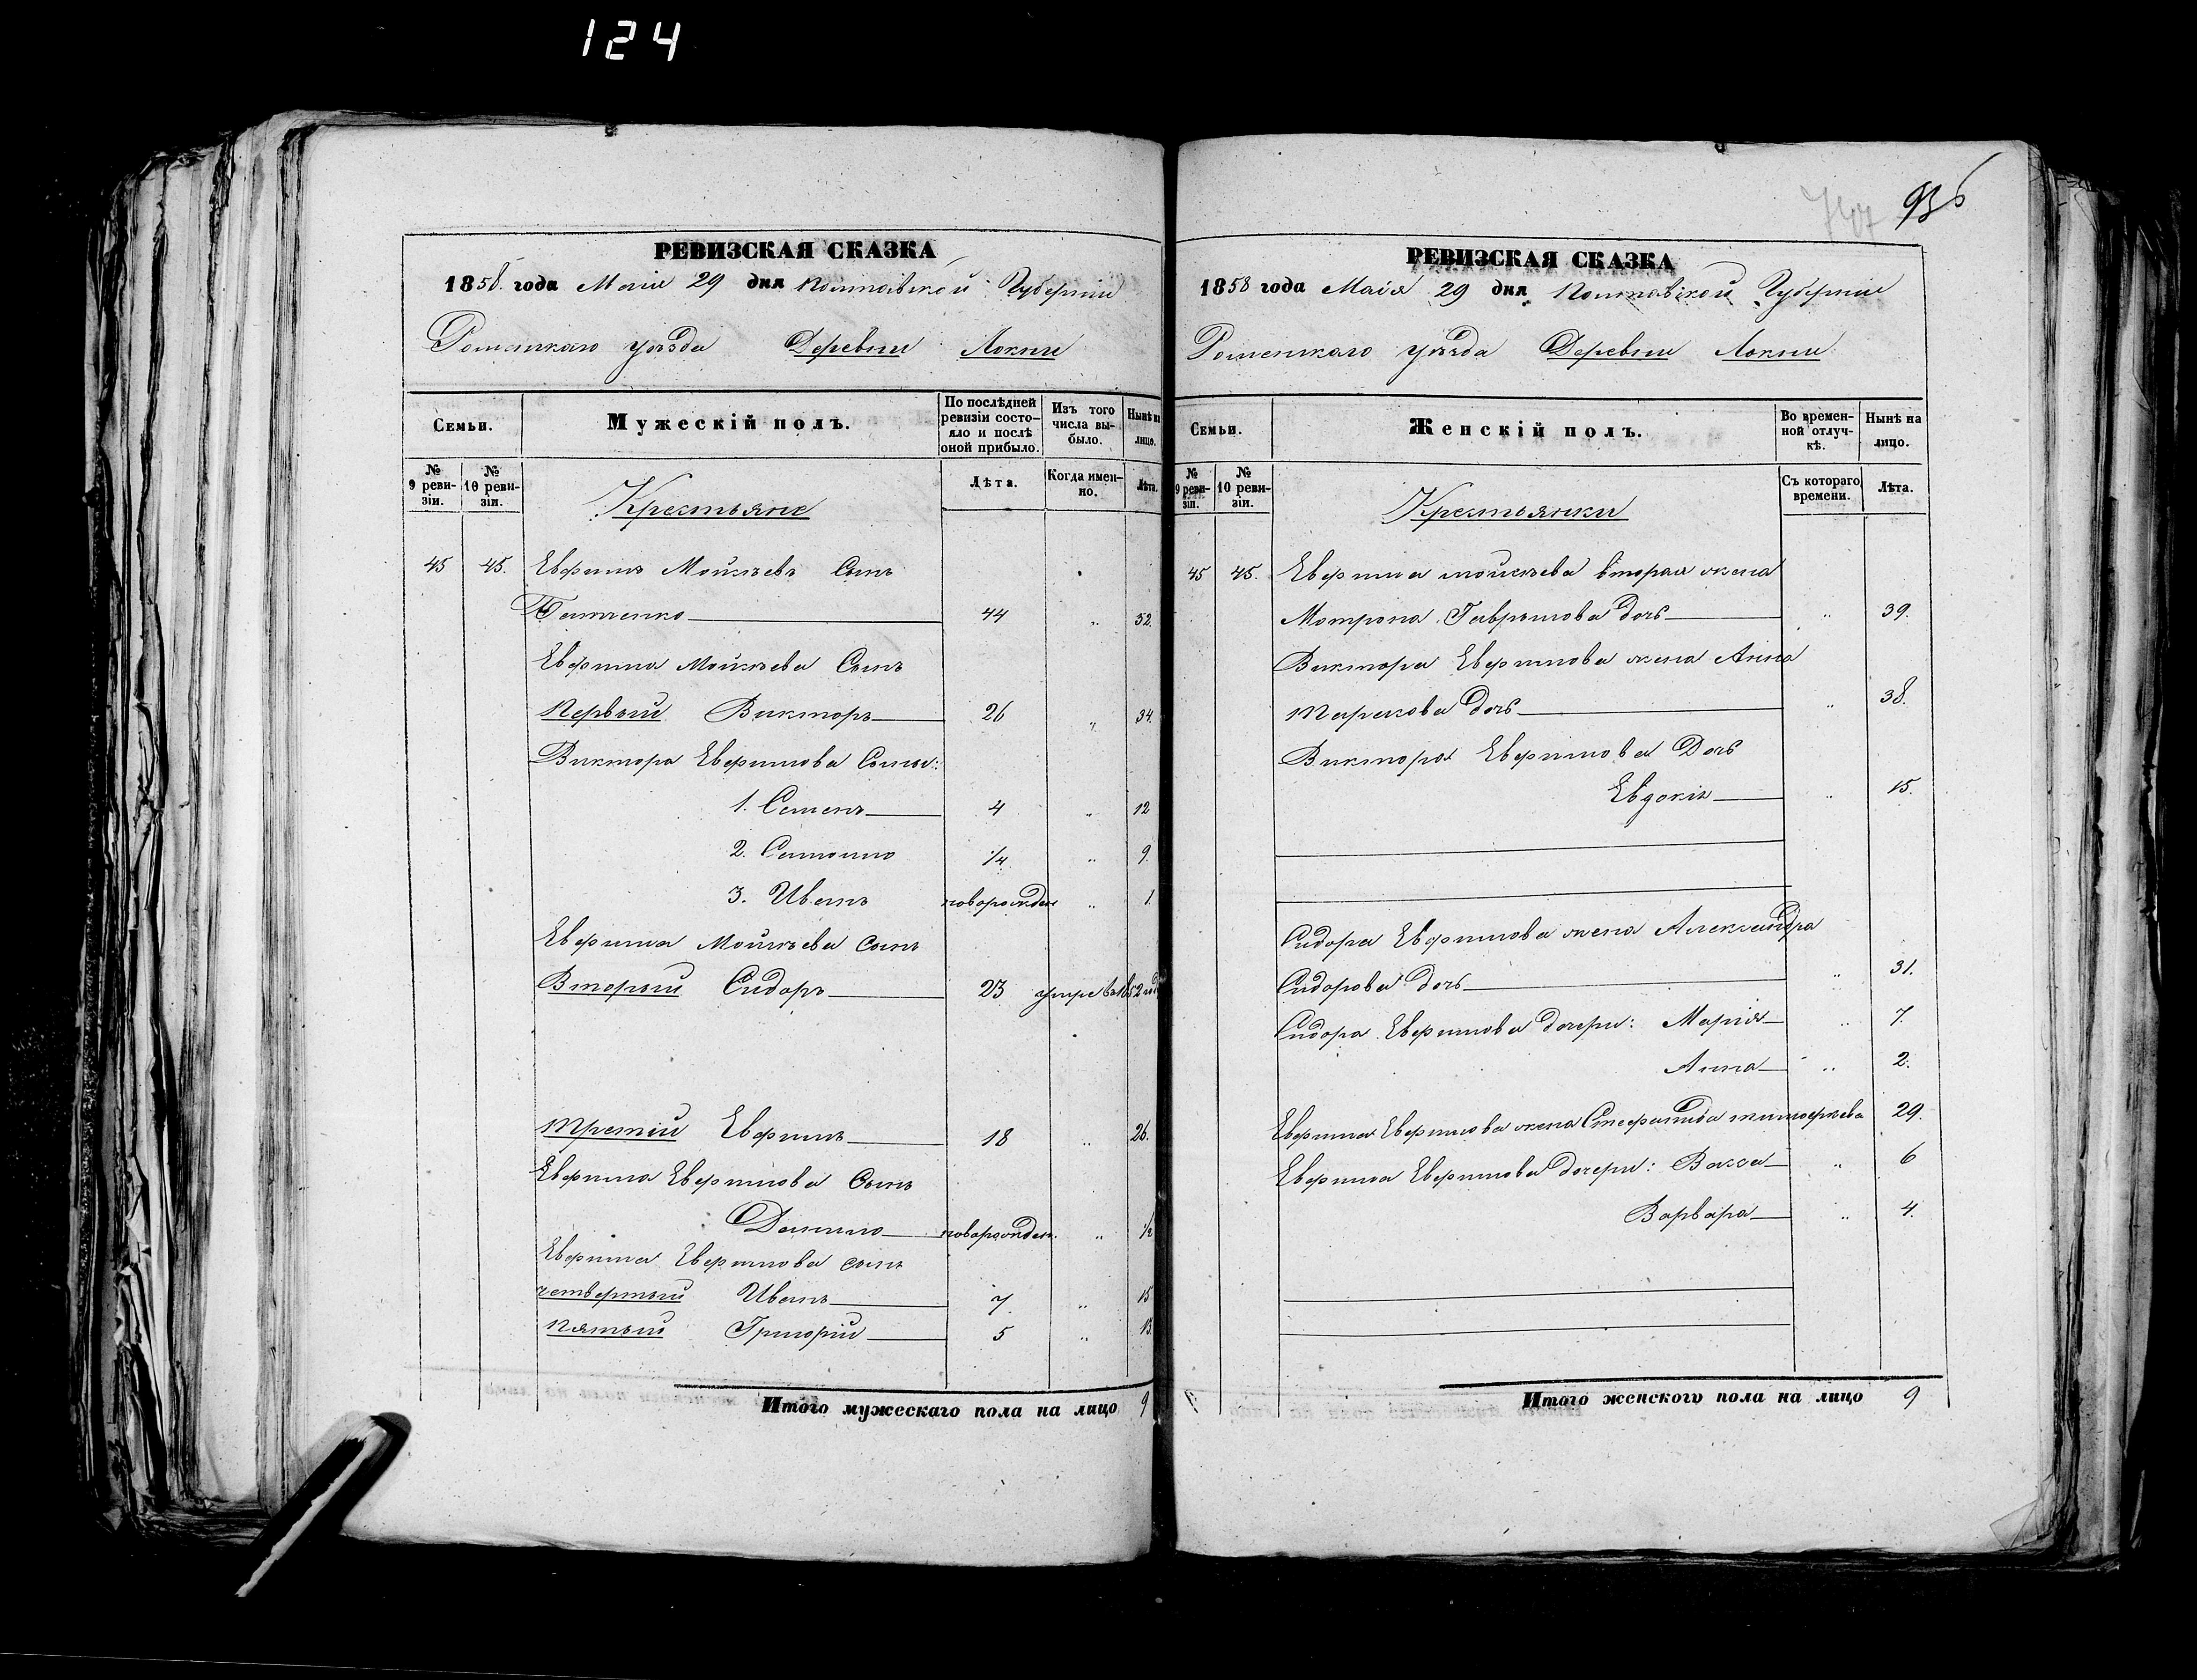 124
РЕВИЗСКАЯ СКАЗКА
1858 года Маія 29 дня Полтавской Губерніи
Роменскаго уѣзда Деревни Локни
Семьи.
Мужескій полъ.
По послѣдней ревизіи состояло и послѣ оной прибыло.
Изъ того числа выбыло.
Нынѣ на лицо.
№ 9 ревизіи.
№ 10 ревизіи.
Крестьяне
Лѣта.
Когда именно.
Лѣта.
45 45. Евфимъ Мойсѣевъ Сынъ
44 „ 52.
Евфима Мойсѣева Сынъ
Первый Викторъ 26 „ 34.
Виктора Евфимова Сыны:
1. Семенъ 4 „ 12
2. 1/4 „ 9.
3. Иванъ новорожден „ 1.
Евфима Мойсѣева сынъ
Вторый Сидоръ 23 умре въ 1852 годѣ
Третій Евфимъ 18 „ 26.
Евфима Евфимова Сынъ
Данило новорожден. „ 1/2
Евфима Евфимова сынъ
четвертый Иванъ 7 „ 15
Пятый Григорій 5 „ 13.
Итого мужескаго пола на лицо 9
936
747
РЕВИЗСКАЯ СКАЗКА
1858 года Маія 29 дня Полтавской Губерніи
Роменскаго уѣзда Деревни Локни
Семьи.
Женскій полъ.
Во временной отлучкѣ.
Нынѣ на лицо.
№ 9 ревизіи.
№ 10 ревизіи.
Крестьянки
Съ котораго времени.
Лѣта.
45 45. Евфима мойсѣева вторая жена
Мотрона Гаврилова дочь „ 39.
Виктора Евфимова жена Анна
Тарасова дочь „ 38.
Виктора Евфимова Дочь
Евдокія „ 15.
Сидора Евфимова жена Александра
Сидорова дочь „ 31.
Сидора Евфимова дочери: Марія „ 7.
Анна „ 2.
Евфима Евфимова жена Стефанида тимофеева 29.
Евфима Евфимова дочери: Васса „ 6
Варвара „ 4.
Итого женского пола на лицо 9